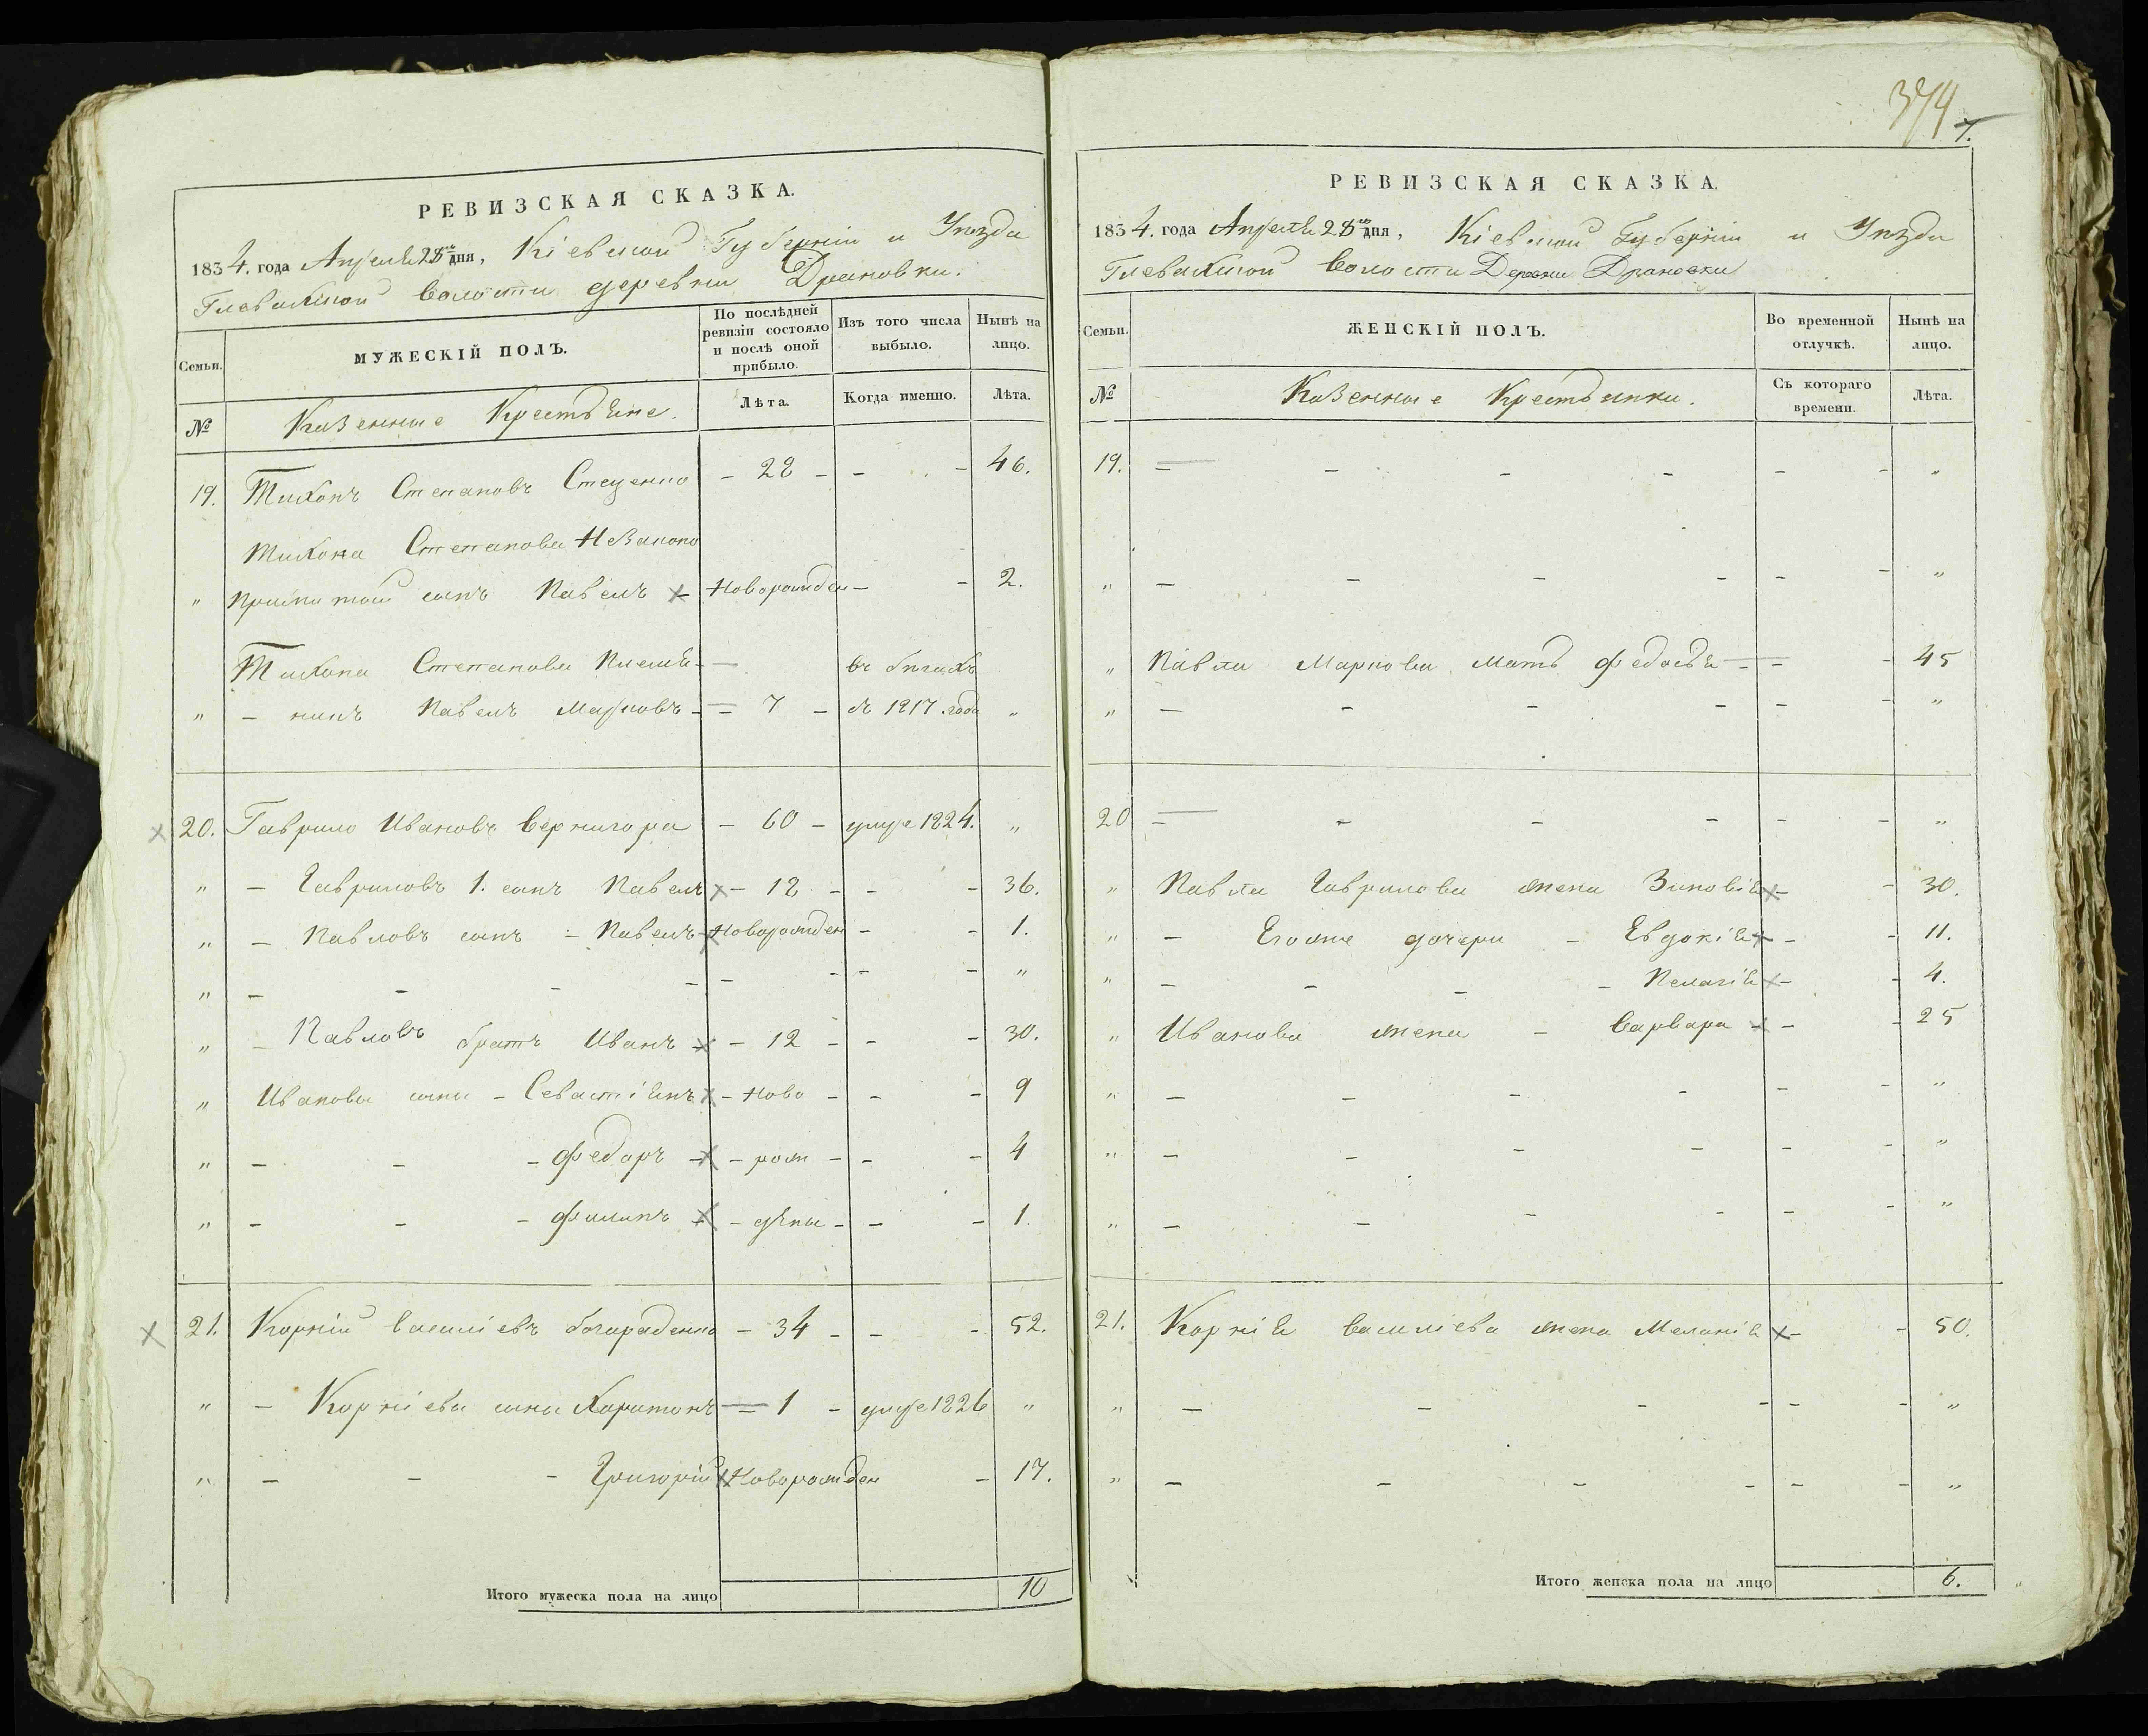 374
7.
РЕВИЗСКАЯ СКАЗКА.
1834. года Апреля 28го дня, Кіевской Губерніи и Уѣзда
Глевахской волости деревни Драновки.
Семьи.
МУЖЕСКІЙ ПОЛЪ.
По послѣдней ревизіи состояло и послѣ оной прибыло.
Изъ того числа выбыло.
Нынѣ на лицо.
№
Казенные Крестьяне.
Лѣта.
Когда именно.
Лѣта.
19. Тихонъ Степановъ Стеценко - 28 - - - 46.
Тихона Степанова Незаконо
" прижитой сынъ Павелъ Новорожден - - 2.
Тихона Степанова племя- въ бѣгахъ
" - никъ Павелъ Марковъ - 7 - съ 1817. года "
20. Гаврило Ивановъ Вернигора - 60 - умре 1824. "
" - Гавриловъ 1. сынъ Павелъ - 12 - - - 36.
" - Павловъ сынъ - Павелъ Новорожден - - 1.
" - - - - - - - - "
" - Павловъ братъ Иванъ - 12 - - - 30.
" Ивановы сыны - Севастіянъ - Ново - - - 9
" - - - Федоръ - рож - - - 4
" - - - Филипъ - дены - - - 1.
21. Корній Василіевъ Богараденко - 34 - - - 52.
" - Корніевы сыны Харитонъ - 1 - умре 1826 "
" - - - Григорій Новорожден - 17.
Итого мужеска пола на лицо 10
РЕВИЗСКАЯ СКАЗКА.
1834. года Апреля 28го дня, Кіевской Губерніи и Уѣзда
Глевахской волости Деревни Драновки
Семьи.
ЖЕНСКІЙ ПОЛЪ.
Во временной отлучкѣ.
Нынѣ на лицо.
№
Казенные Крестьянки.
Съ котораго времени.
Лѣта.
19. - - - - - - "
" - - - - - - "
" Павла Маркова мать Федосья - - - 45
" - - - - - - "
20 - - - - - - "
" Павла Гаврилова жена Зиновія - - 30.
" - Егоже дочери - Евдокія - - 11.
" - - - - Пелагія - - 4.
" Иванова жена - Варвара - - - 25
" - - - - - - "
" - - - - - - "
" - - - - - - "
21. Корнія Василіева жена Меланія - - 50.
" - - - - - - "
" - - - - - - "
Итого женска пола на лицо 6.